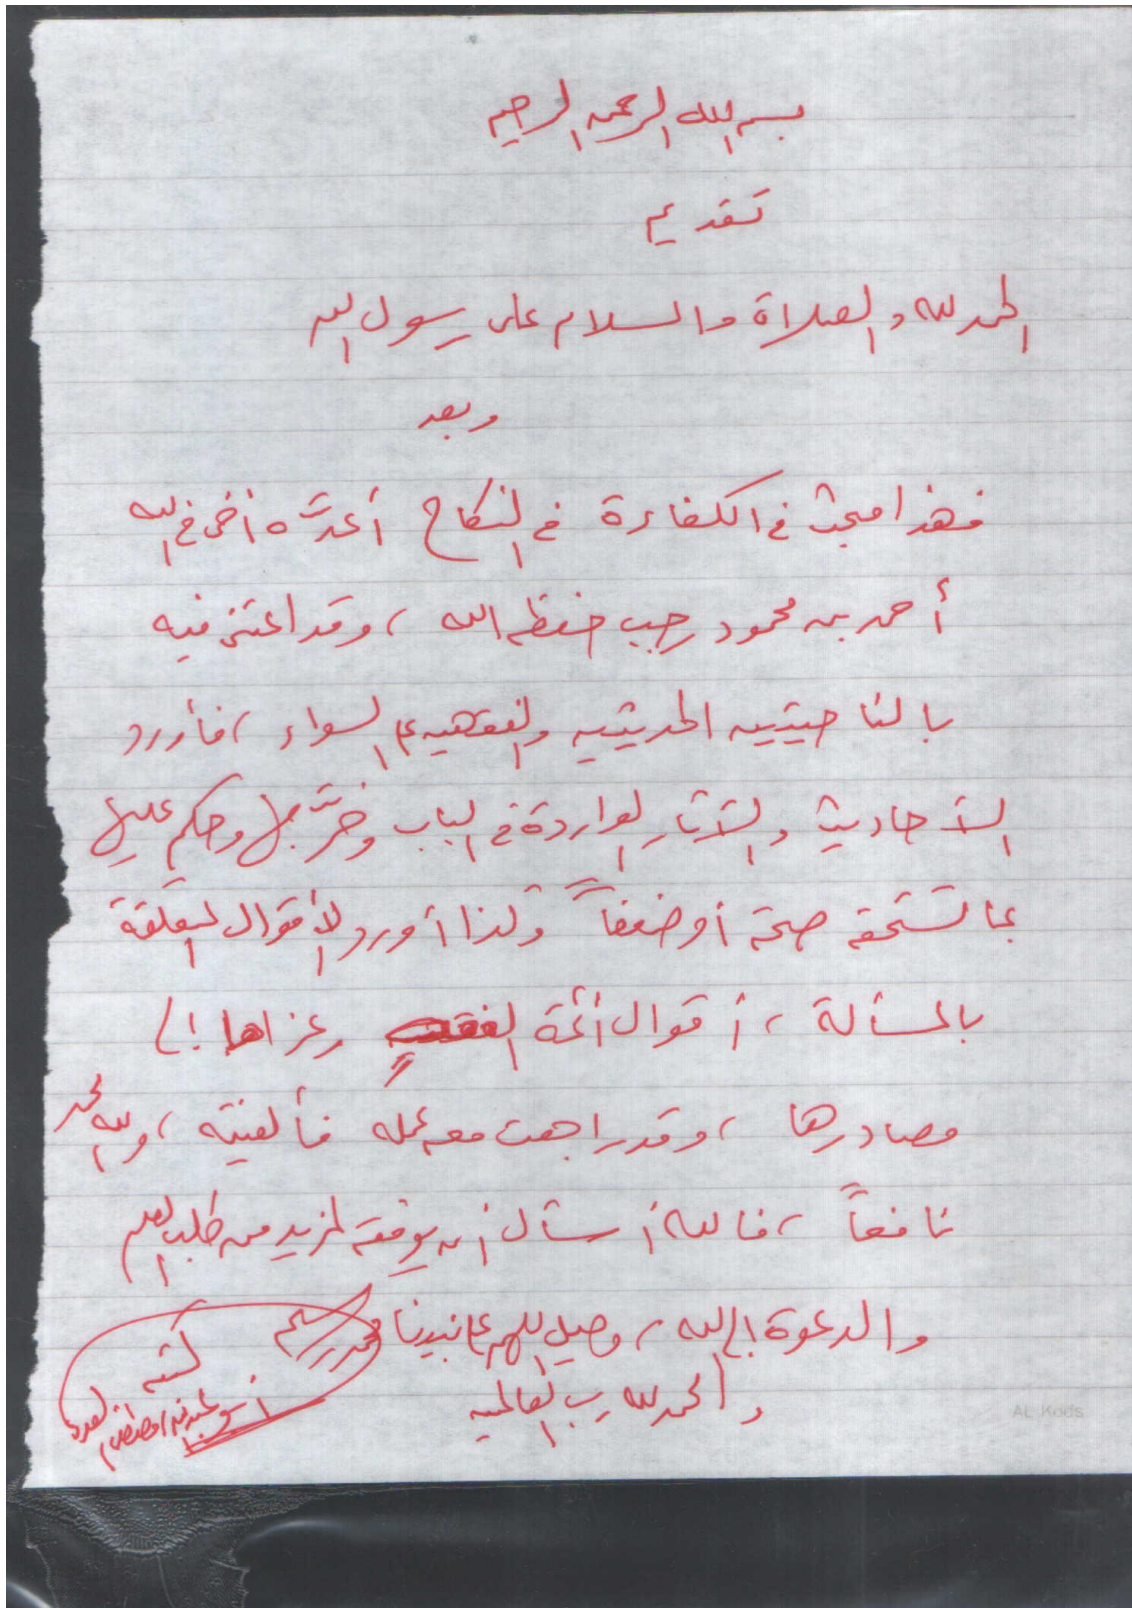 بسم الله الرحمن الرحيم
تقديم
الحمد لله والصلاة والسلام على رسول الله
وبعد
فهذا مبحث في الكفاءة في النكاح أعدَّه أخي في الله
أحمد بن محمود رجب حفظه الله ، وقد اعتنى فيه
بالناحيتين الحديثية والفقهية على السواء ، فأورد
الأحاديث والآثار الواردة في الباب وخرَّجها وحكم عليها
بما تستحقه صحة أو ضعفاً وكذا أورد الأقوال المتعلقة
بالمسألة ، أقوال أئمة الفقه وعزاها إلى
مصادرها ، وقد راجعت معه عمله فألفيته ، ولله الحمد
نافعاً ، فالله أسأل أن يوفقه لمزيد من طلب العلم
والدعوة إلى الله ، وصلِ اللهم على نبينا محمد وسلم
والحمد لله رب العالمين
كتبه
أبو عبد الله مصطفى بن العدوي
AL Kods